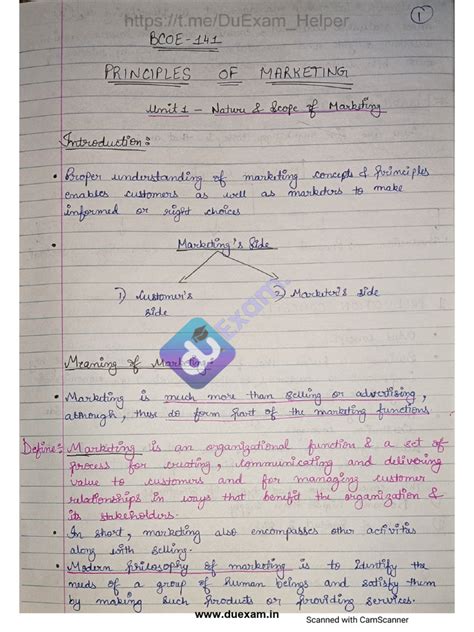 https://t.me/DuExam_Helper
1
BCOE-141
PRINCIPLES OF MARKETING
Unit 1 - Nature & Scope of Marketing
Introduction:
• Proper understanding of marketing concepts & principles
enables customers as well as marketers to make
informed or right choices
• Marketing's Side
1) Customer's
side
2) Marketer's side
du Exam
Meaning of Marketing:
• Marketing is much more than selling or advertising,
although, these do form part of the marketing functions
Define:- Marketing is an organizational function & a set of
process for creating, communicating and delivering
value to customers and for managing customer
relationships in ways that benefit the organization &
its stakeholders.
• In short, marketing also encompasses other activities
along with selling.
• Modern philosophy of marketing is to Identify the
needs of a group of human beings and satisfy them
by making such products or providing services.
www.duexam.in
Scanned with CamScanner